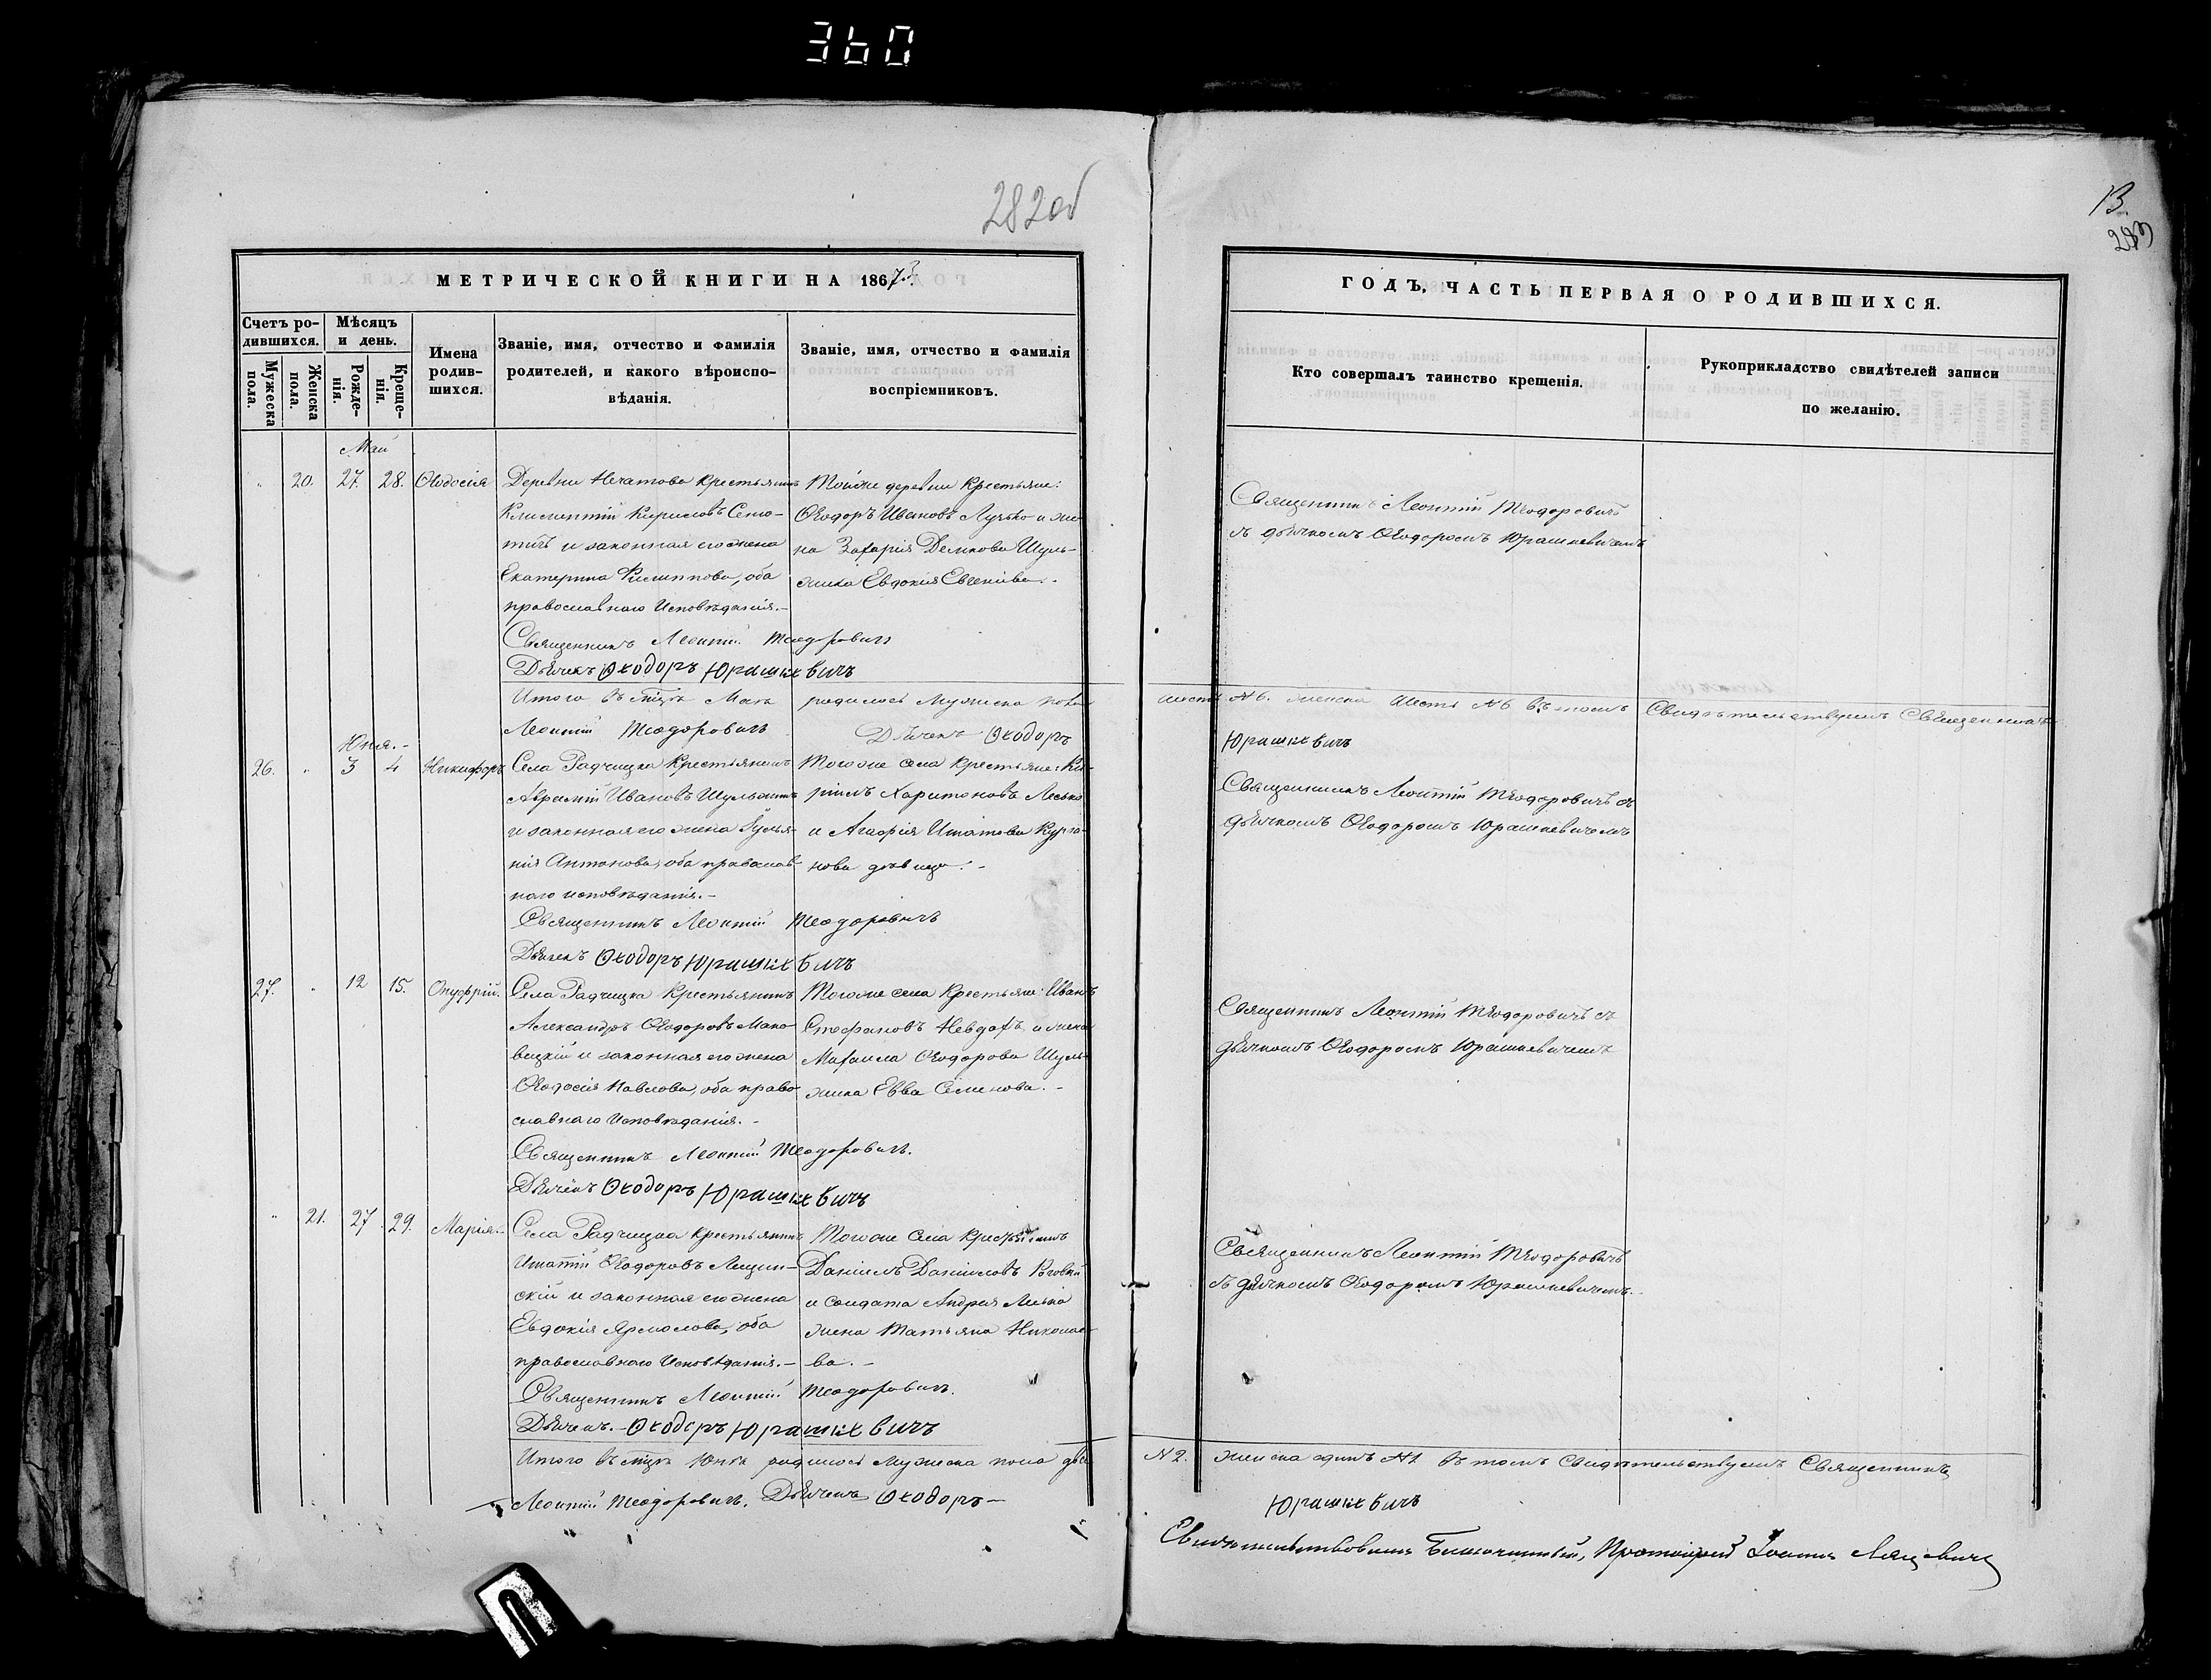 360
282об
13.
283
МЕТРИЧЕСКОЙ КНИГИ НА 1873.
Счетъ ро-
дившихся.
Мѣсяцъ
и день.
Мужеска
пола.
Женска
пола.
Рожде-
нія.
Креще-
нія.
Имена
родив-
шихся.
Званіе, имя, отчество и фамилія
родителей, и какого вѣроиспо-
вѣданія.
Званіе, имя, отчество и фамилія
воспріемниковъ.
ГОДЪ, ЧАСТЬ ПЕРВАЯ О РОДИВШИХСЯ.
Кто совершалъ таинство крещенія.
Рукоприкладство свидѣтелей записи
по желанію.
Май
20. 27. 28. Ѳеодосія
Деревни Нечатова крестьянинъ
Климентій Кириловъ
и законная его жена
Екатерина Филиппова, оба
православнаго исповѣданія.-
Тойже деревни крестьяне:
Ѳеодоръ Ивановъ Лучко и же-
на Захарія Демкова Шуль-
жика Евдокія
Священникъ Леонтій Теодоровичъ
съ дьячкомъ Ѳеодоромъ Юрашкевичемъ
Священникъ Леонтій Теодоровичъ
Дьячекъ Ѳеодоръ Юрашкевичъ
Итого въ мѣсяцѣ Маѣ родилось мужеска пола шесть №6. женска шесть №6 въ томъ свидѣтельствуемъ Священникъ
Леонтій Теодоровичъ Дьячекъ Ѳеодоръ Юрашкевичъ
Юня.-
26. " 3 4 Никифоръ
Села Радчицка крестьянинъ
Аврамій Ивановъ Шульжикъ
и законная его жена Іулья-
нія Антонова, оба православ-
наго исповѣданія.-
Того же села крестьяне: Ки-
Харитоновъ Лесько
и Агафія Игнатова
дѣвица.-
Священникъ Леонтій Теодоровичъ съ
дьячкомъ Ѳеодоромъ Юрашкевичемъ
Священникъ Леонтій Теодоровичъ
Дьячекъ Ѳеодоръ Юрашкевичъ
27. " 12 15. Онуфрій.
Села Радчицка крестьянинъ
Александръ Ѳеодоровъ Мако-
вецкій и законная его жена
Ѳеодосія Павлова, оба право-
славнаго исповѣданія.-
Того же села крестьяне: Иванъ
Стефановъ Невдахъ и жена
Михаила Ѳеодорова Шуль-
жика Евва Семенова.-
Священникъ Леонтій Теодоровичъ съ
дьячкомъ Ѳеодоромъ Юрашкевичемъ
Священникъ Леонтій Теодоровичъ.
Дьячекъ Ѳеодоръ Юрашкевичъ
" 21. 27. 29. Марія.-
Села Радчицка крестьянинъ
Игнатій Ѳеодоровъ Лещин-
скій и законная его жена
Евдокія Ярмолова, оба
православнаго исповѣданія.-
Того же села крестьянинъ
Даніилъ Даніиловъ
и солдата Андрея Лесько
жена Татьяна Николае-
ва.-
Священникъ Леонтій Теодоровичъ
съ дьячкомъ Ѳеодоромъ Юрашкевичемъ.-
Священникъ Леонтій Теодоровичъ.
Дьячекъ.- Ѳеодоръ Юрашкевичъ
Итого въ мѣсяцѣ Юнѣ родилось мужеска пола два №2. женска одинъ №1 въ томъ свидѣтельствуемъ Священникъ
Леонтій Теодоровичъ. Дьячекъ Ѳеодоръ- Юрашкевичъ
Свидѣтельствовалъ Благочинный, Протоіерей Іоаннъ